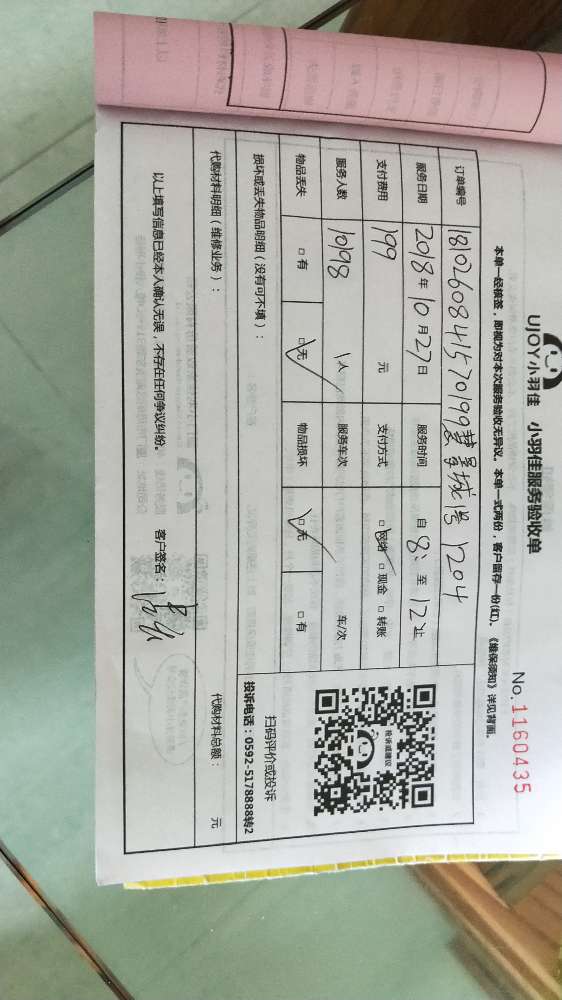 UJOY小羽佳 小羽佳服务验收单
No. 1160435
本单一经核签，即视为对本次服务验收无异议。本单一式两份，客户留存一份(红)。《维保须知》详见背面。
订单编号 1810260841570199慧景城1号1204
服务日期 2018年10月27日 服务时间 自8: 至12止
支付费用 199 元 支付方式 □网络 □现金 □转账
服务人数 1098 1人 服务车次 车/次
物品丢失 □有 □无 物品损坏 □无 □有
扫码评价或投诉
投诉或建议
投诉电话：0592-5178888转2
损坏或丢失物品明细（没有可不填）：
代购材料明细（维修业务）： 代购材料总额： 元
以上填写信息已经本人确认无误，不存在任何争议纠纷。 客户签名：